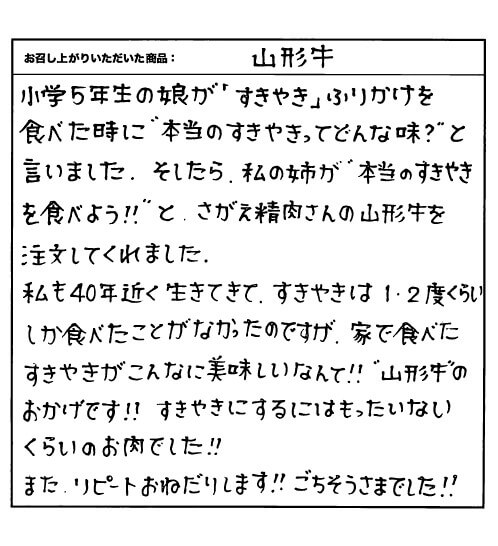 お召し上がりいただいた商品： 山形牛
小学5年生の娘が「すきやき」ふりかけを
食べた時に"本当のすきやきってどんな味？"と
言いました。そしたら、私の姉が"本当のすきやき
を食べよう!!"と、さがえ精肉さんの山形牛を
注文してくれました。
私も40年近く生きてきて、すきやきは1・2度くらい
しか食べたことがなかったのですが、家で食べた
すきやきがこんなに美味しいなんて!!"山形牛"の
おかげです!! すきやきにするにはもったいない
くらいのお肉でした!!
また、リピートおねだりします!! ごちそうさまでした!!